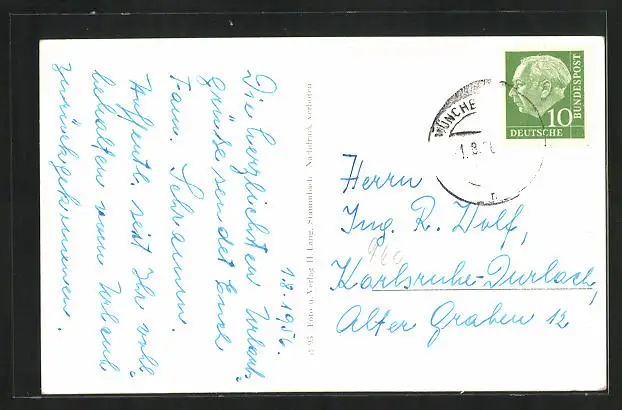 1.8.1956.
Die herzlichsten Urlaubs-
grüße sendet Euch
Fam. Schramm.
Hoffentl. seit Ihr wohl-
behalten vom Urlaub
zurückgekommen.
Foto u. Verlag H. Lang, Stammbach Nachdruck verboten
MÜNCHE
DEUTSCHE
BUNDESPOST
10
Herrn
Ing. R. Wolf,
Karlsruhe-Durlach,
Alter Graben 12